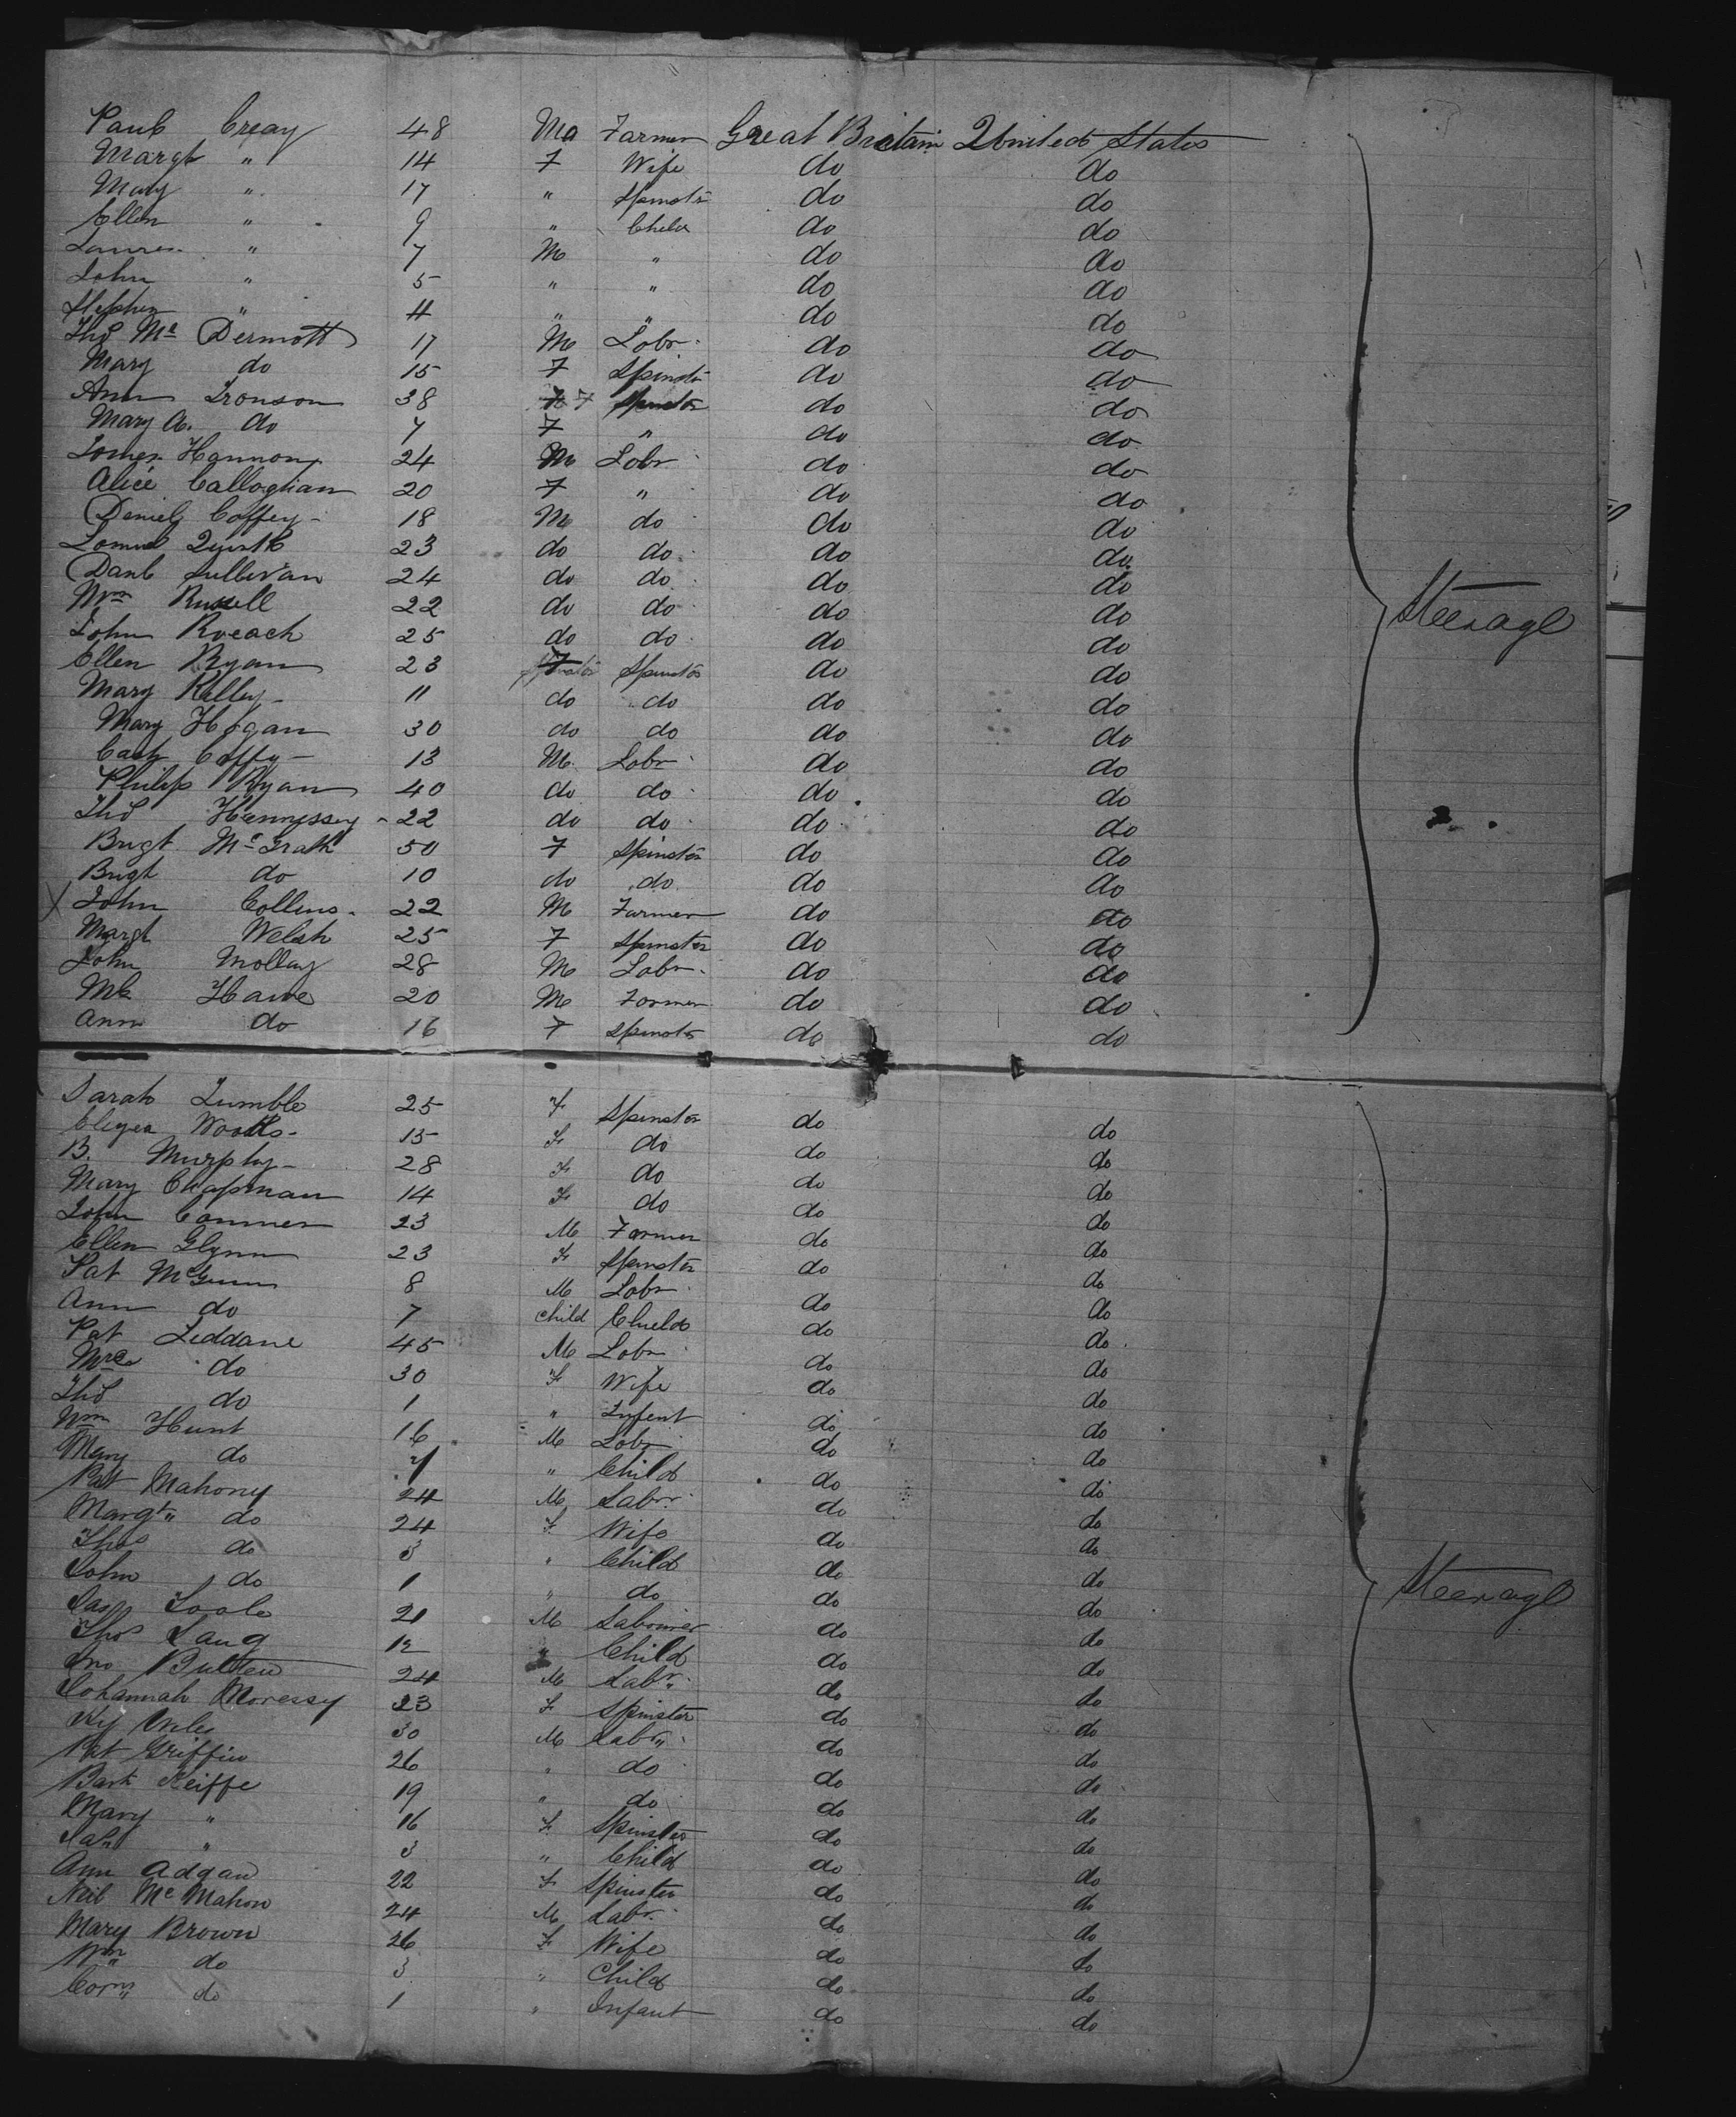 Creay 48 Ma Farmer Great Britain United States
Margt " 14 F Wife do do
Mary " 17 " Spinstr do do
Ellen " 9 " Child do do
" 7 M " do do
John " 5 " " do do
Stephen " 4 " " do do
Thos Mc Dermott 17 M Labr do do
Mary do 15 F Spinstr do do
Ann Ironson 38 F Spinstr do do
Mary A. do 7 F " do do
James Hannon 24 M Labr do do
Alice Callaghan 20 F " do do
Daniel Coffey 18 M do do do
23 do do do do
Danl Sullivan 24 do do do do
Wm Russell 22 do do do do
John Roeach 25 do do do do
Ellen Ryan 23 F Spinstr do do
Mary Kelley 11 do do do do
Mary Hogan 30 do do do do
Coffy 13 M Labr do do
Philip Ryan 40 do do do do
Thos Hennessey 22 do do do do
Brigt McGrath 50 F Spinstr do do
Brigt do 10 do do do do
X John Collins 22 M Farmer do do
Margt Welsh 25 F Spinstr do do
John Molloy 28 M Labr do do
Ml Hawe 20 M Farmer do do
Ann do 16 F Spinstr do do
Steerage
Sarah Tumble 25 F Spinstr do do
Woods 15 F do do do
B. Murphy 28 F do do do
Mary Chapman 14 F do do do
John Conner 23 M Farmer do do
Ellen Glynn 23 F Spinstr do do
Pat McGunn 8 M Labr do do
Ann do 7 Child Child do do
Pat Leddane 45 M Labr do do
Mrs do 30 F Wife do do
Thos do 1 " Infent do do
Wm Hunt 16 M Labr do do
Mary do 7 " Child do do
Pat Mahony 24 M Labr do do
Margt do 24 F Wife do do
Thos do 3 " Child do do
John do 1 " do do do
Jas Toole 21 M Labourer do do
Thos Lang 12 " Child do do
Jno Bulten 24 M Labr do do
Johannah Moressy 23 F Spinster do do
30 M Labr do do
Pat Griffin 26 " do do do
Bart Keiffe 19 " do do do
Mary " 16 F Spinster do do
" 3 " Child do do
Ann Adgan 22 F Spinster do do
Neil McMahon 24 M Labr do do
Mary Brown 26 F Wife do do
Wm do 3 " Child do do
Corns do 1 " Infant do do
Steerage